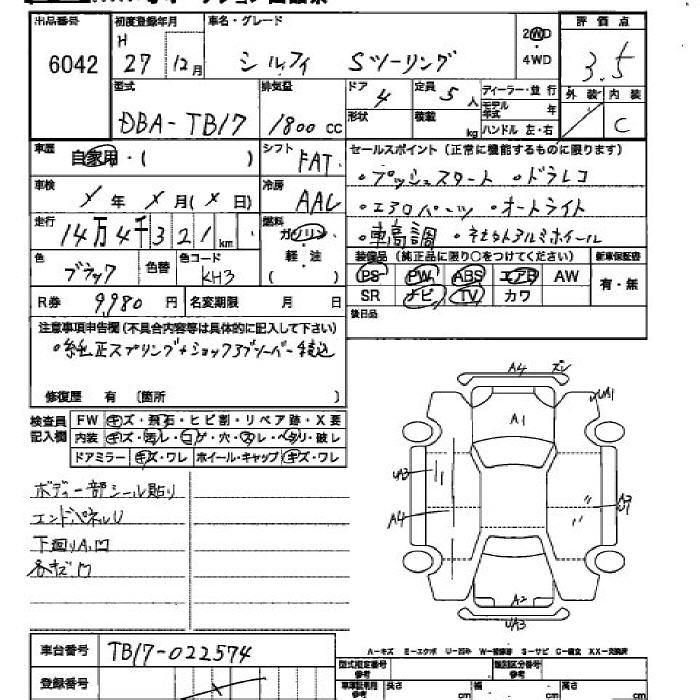 出品番号 初度登録年月 車名・グレード 評価点
6042 H 27 12月 シルフィ Sツーリング 2WD・4WD 3.5
型式 排気量 ドア 4 定員 5人 ディーラー・並行 外装 内装
DBA-TB17 1800cc 形状 積載 kg モデル年式 年 ハンドル 左・右 C
車歴 自家用・( ) シフト FAT セールスポイント(正常に機能するものに限ります)
車検 X年X月(X日) 冷房 AAC ・プッシュスタート ・ドラレコ
・エアロパーツ ・オートライト
走行 14万4千321km 燃料 ガソリン・軽・油 ( ) ・車高調 ・社外アルミホイール
色 ブラック 色替 色コード KH3 装備品(純正品に限り○をつけてください) 新車保証書
PS PW ABS エアB AW 有・無
R券 9980円 名変期限 月 日 SR ナビ TV カワ
注意事項申告欄(不具合内容等は具体的に記入して下さい) 後日品
・純正スプリング+ショックアブソーバー積込
修復歴 有 〔箇所 〕
検査員記入欄 FW キズ・飛石・ヒビ割・リペア跡・X要
内装 キズ・汚レ・コゲ・穴・スレ・ヘタリ・破レ
ドアミラー キズ・ワレ ホイール・キャップ キズ・ワレ
ボディ一部シール貼り
エンドパネルU
下廻りA,凹
各所凹
A4 ズレ
UA1
A1
UA3
A4
A2
UA3
車台番号 TB17-022574
登録番号
A-キズ E-エクボ U-凹み W-補修跡 S-サビ C-腐食 XX-交換済
型式指定番号 参考 類別区分番号 参考
長さ cm 幅 cm 高さ cm